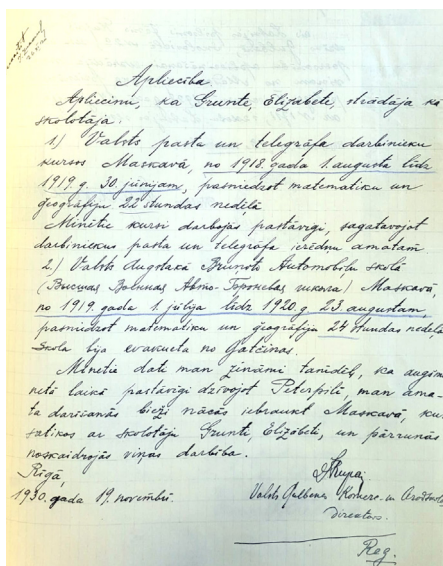 Apliecība.
Apliecinu, ka Grunte, Elizabete, strādāja kā
skolotāja:
1.) Valsts pasta un telegrāfa darbinieku
kursos Maskavā, no 1918. gada 1. augusta līdz
1919. g. 30. jūnijam, pasniedzot matemātiku un
ģeogrāfiju 22 stundas nedēļā
Minētie kursi darbojās pastāvīgi, sagatavojot
darbiniekus pasta un telegrāfa ierēdņu amatam
2.) Valsts Augstākā Bruņotā Automobiļu skolā
(Высшая Военная Авто-Броневая школа) Maskavā,
no 1919. gada 1. jūlija līdz 1920. g. 23. augustam,
pasniedzot matemātiku un ģeogrāfiju 24 stundas nedēļā
Skola bija evakuēta no Gatčinas.
Minētie dati man zināmi tamdēļ, ka augšmi-
nētā laikā pastāvīgi dzīvojot Pēterpilī, man ama-
ta darīšanās bieži nācās iebraukt Maskavā, kur
satikos ar skolotāju Grunte, Elizabeti, un pārrunās
noskaidrojās viņas darbība.
Rīgā,
1930. gada 19. novembrī.
Valsts Gulbenes Komerc- un Arodskolas
Direktors.
Reg.